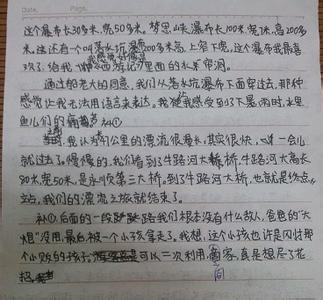 Date. Page.
这个瀑布长30多米,宽50多米。梦思峡瀑布长100米,宽2米,高200多
米。这还有一个叫落水坑瀑布200多米高,上窄下宽,这个瀑布我最喜
欢了,给我 我感觉好像是 西游记里面的水帘洞。
通过船老大的同意,我们从落水坑瀑布下面穿过去,那种
感觉让我无法用语言来表达,我 感受到了下暴雨时,水里
鱼儿们的 补①
我认为 公里的漂流很漫长,其实很快, 一会儿
就过去了。慢慢的,我们看到了牛路河大桥,牛路河大高长
80米,宽50米,是永顺第三大桥。到了牛路河大桥,也就是终点
站,我们的漂流之旅就结束了。
补① 后面的一段路我们根本没有什么敌人,爸爸的“大
炮”没用,最后被一个小孩拿走了。我想,这个小孩也许是闪对那
个小贩的孩子, 可以二次利用,商家,真是想尽了花
招